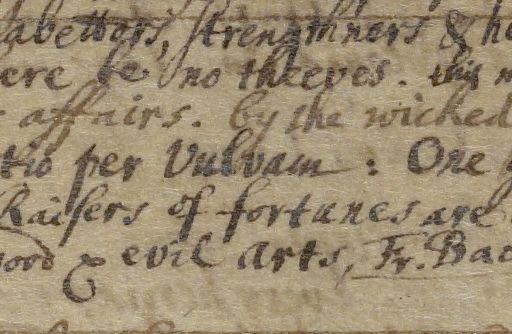 abettors, strengthners & he
ere be no theeves. this n
affairs. by the wicked
tio per Vulvam : One
Raisers of fortunes are
ood & evil Arts, Fr. Bac